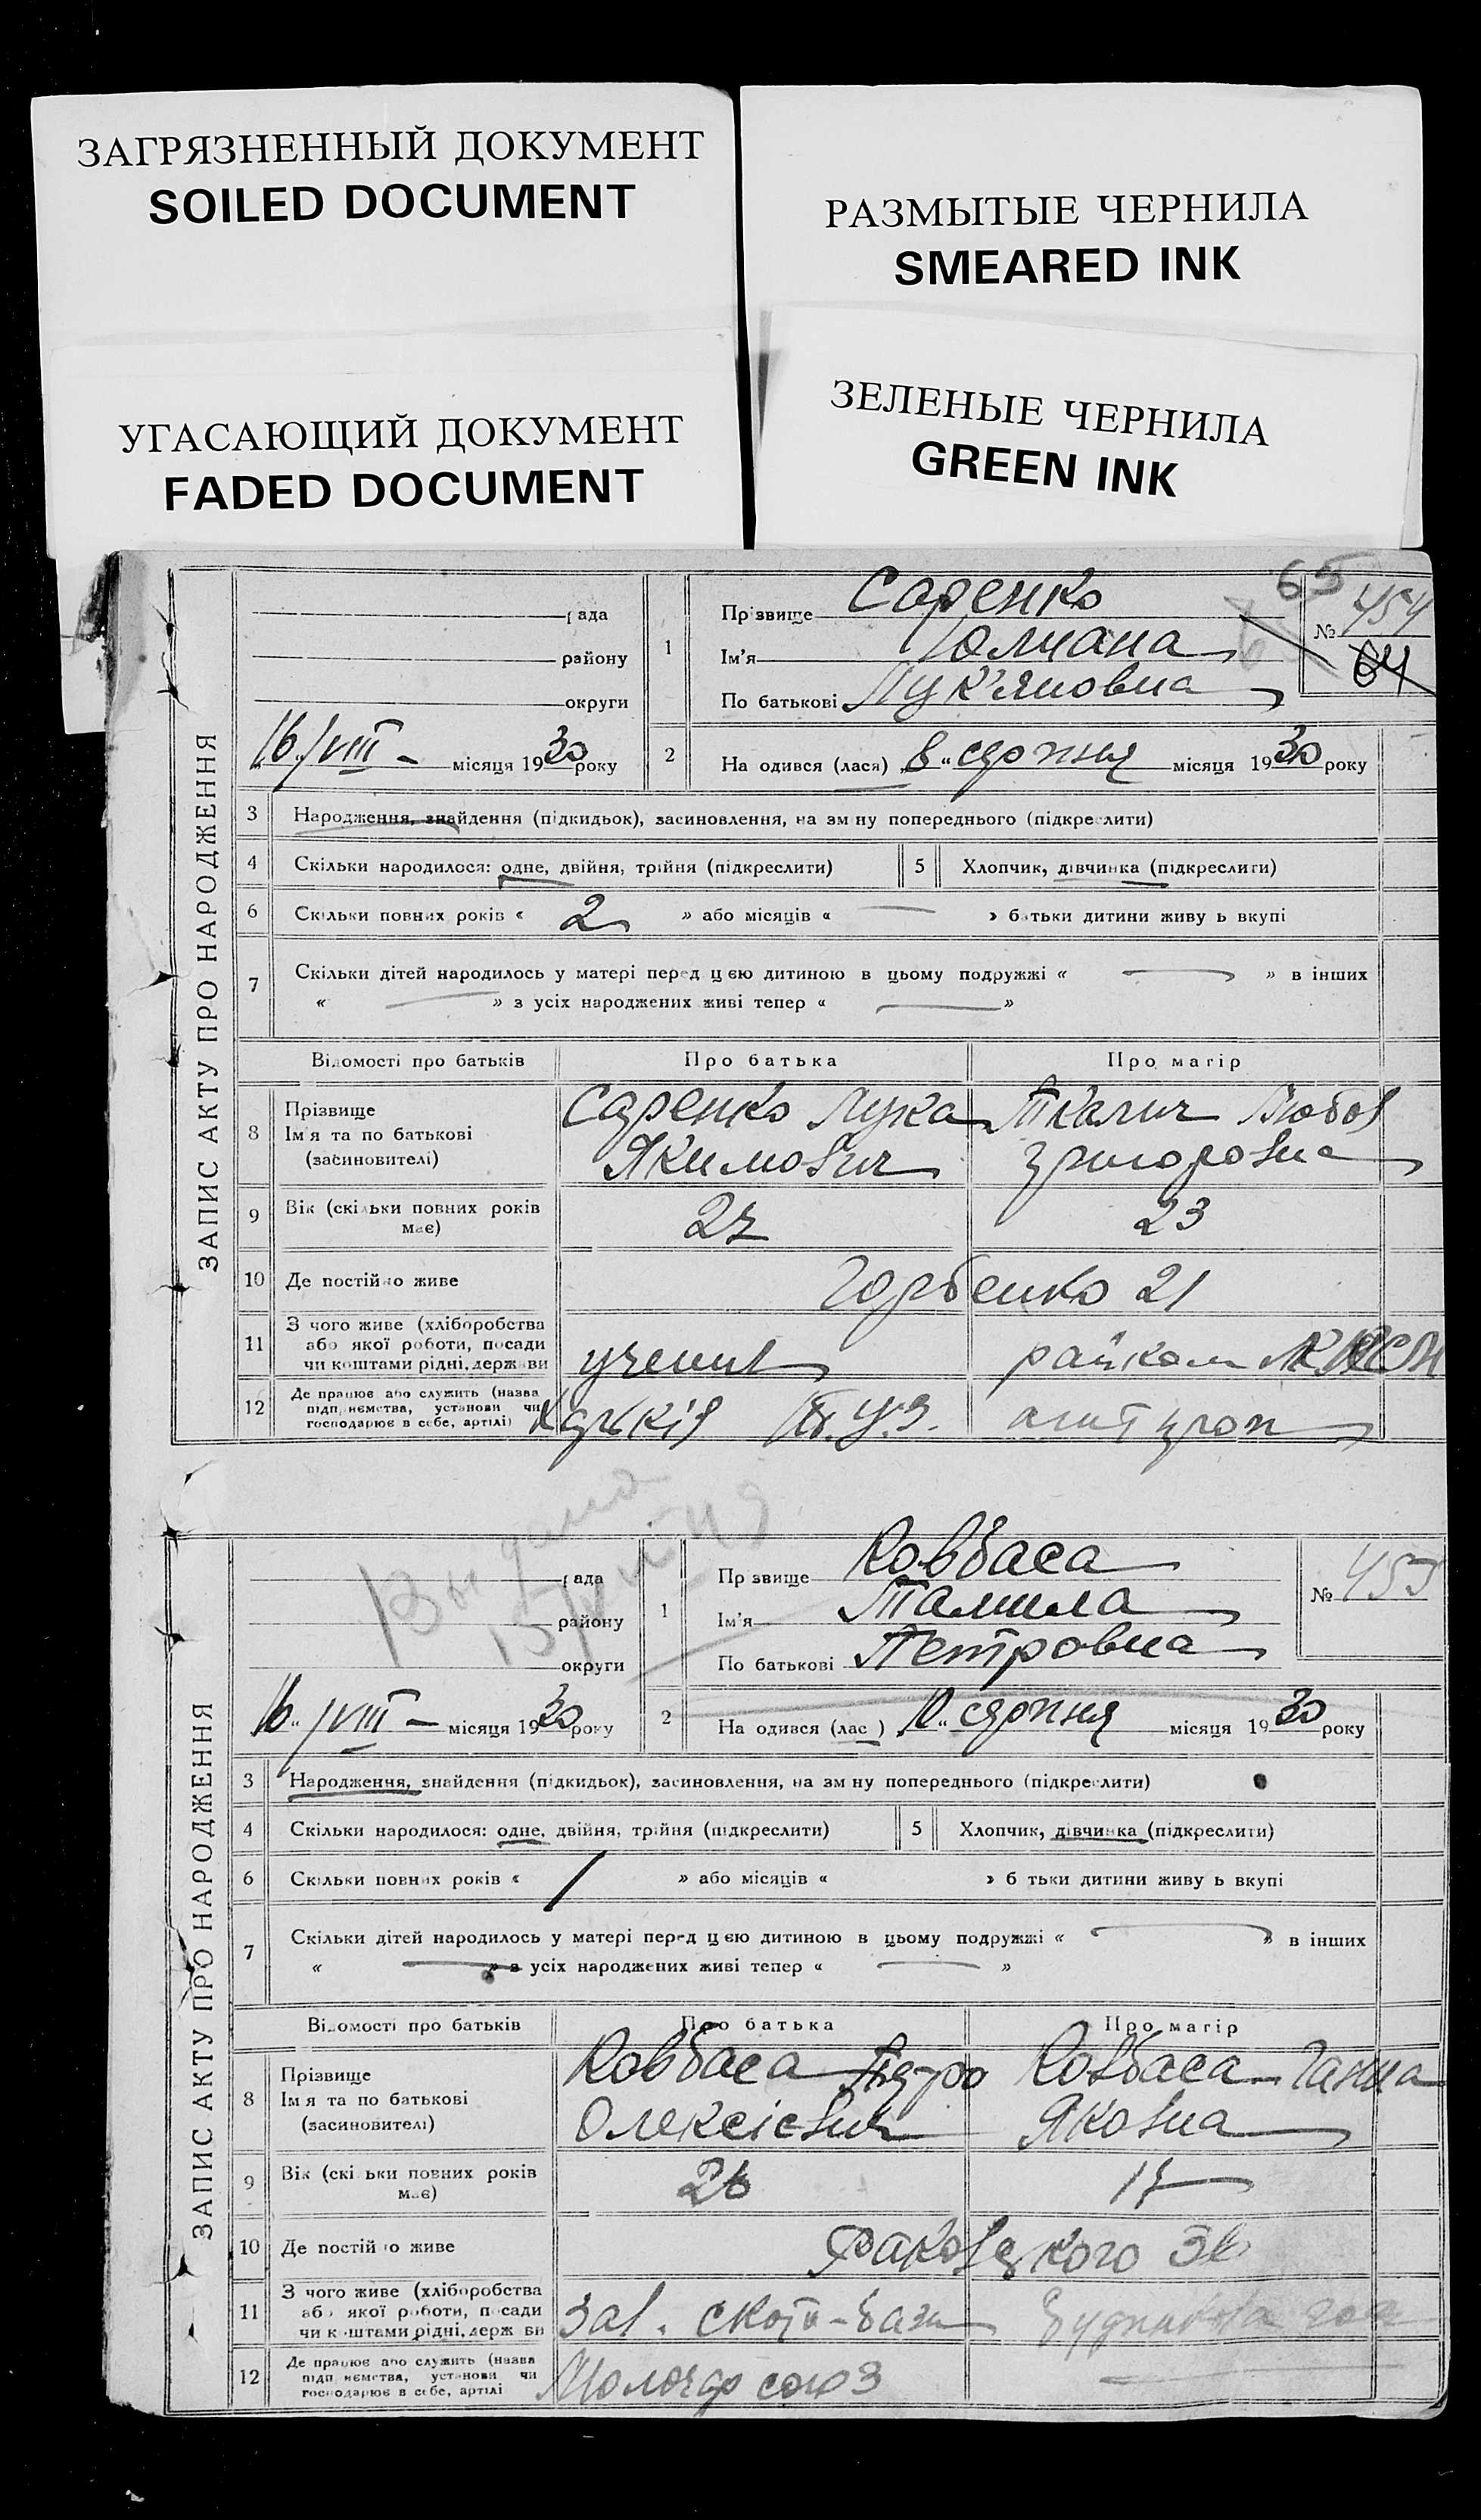 ЗАГРЯЗНЕННЫЙ ДОКУМЕНТ
SOILED DOCUMENT
РАЗМЫТЫЕ ЧЕРНИЛА
SMEARED INK
УГАСАЮЩИЙ ДОКУМЕНТ
FADED DOCUMENT
ЗЕЛЕНЫЕ ЧЕРНИЛА
GREEN INK
ЗАПИС АКТУ ПРО НАРОДЖЕННЯ
рада
району
округи
16 VIII - місяця 1930 року
65
№ 454
64
1
Прізвище Саренко
Ім'я Юлиана
По батькові Лук'яновна
2 На одився (лася) „8" серпня місяця 1930 року
3 Народження, знайдення (підкидьок), засиновлення, на зм ну попереднього (підкреслити)
4 Скільки народилося: одне, двійня, трійня (підкреслити) 5 Хлопчик, дівчинка (підкреслити)
6 Скільки повних років « 2 » або місяців « — » батьки дитини живу ь вкупі
7 Скільки дітей народилось у матері перед цією дитиною в цьому подружжі « — » в інших
« — » з усіх народжених живі тепер « — »
Відомості про батьків Про батька Про матір
8 Прізвище
Ім'я та по батькові
(засиновителі)
Саренко Лука
Якимович
Ткалич Любов
Григоровна
9 Вік (скільки повних років має) 27 23
10 Де постійно живе Горбенко 21
11 З чого живе (хліборобства
або якої роботи, посади
чи коштами рідні, держави
учень
райком
12 Де працює або служить (назва
підприємства, установи чи
господарює в себе, артілі)
Харьків
агитпроп
Выдано
ЗАПИС АКТУ ПРО НАРОДЖЕННЯ
рада
району
округи
16 VIII — місяця 1930 року
№ 455
1
Пр звище Ковбаса
Ім'я Тамила
По батькові Петровна
2 На одився (лас ) „10" серпня місяця 1930 року
3 Народження, знайдення (підкидьок), засиновлення, на зм ну попереднього (підкреслити)
4 Скільки народилося: одне, двійня, трійня (підкреслити) 5 Хлопчик, дівчинка (підкреслити)
6 Скільки повних років « 1 » або місяців « » б тьки дитини живу ь вкупі
7 Скільки дітей народилось у матері перед цією дитиною в цьому подружжі « — » в інших
« — » з усіх народжених живі тепер « — »
Відомості про батьків Про батька Про матір
8 Прізвище
Ім'я та по батькові
(засиновителі)
Ковбаса Педро
Олексієвич
Ковбаса Ганна
Яковна
9 Вік (скі ьки повних років має) 26 17
10 Де постій о живе Раковского
11 З чого живе (хліборобства
або якої роботи, посади
чи коштами рідні, держ ви
зав. ското-бази
12 Де працює або служить (назва
підп иємства, установи чи
господарює в себе, артілі
Молочар союз